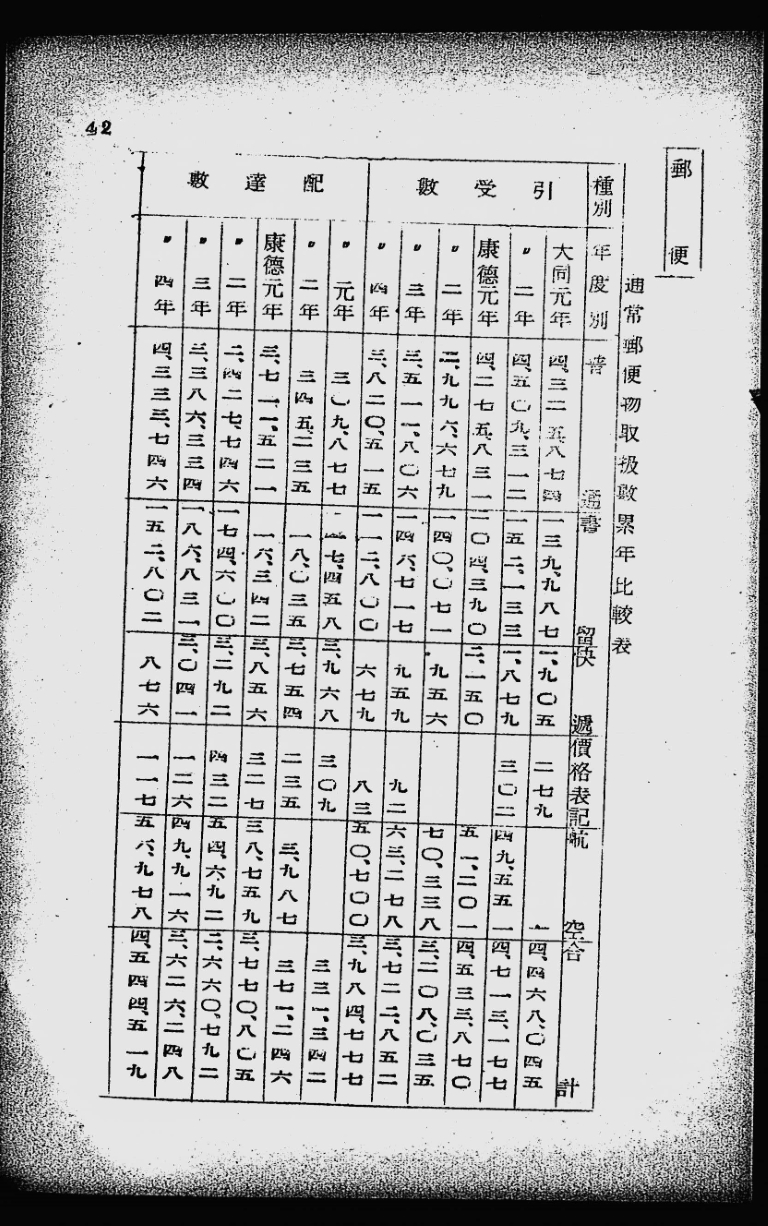 42
郵便
通常郵便物取扱數累年比較表
種別 年度別 普通 書留 快遞 價格表記 航空 合計
引受數
大同元年 四、三二五、八七四 一三九、九八七 一、九〇五 二七九 — 四、四六八、〇四五
〃二年 四、五〇九、三一二 一五二、一三三 一、八七九 三〇二 四九、五五一 四、七一三、一七七
康德元年 四、二七五、八三一 二〇四、三九〇 二、一五〇 五一、二〇一 四、五三三、八七〇
〃二年 二、九九六、六七九 一四〇、〇七一 九五六 七〇、三三八 三、二〇八、〇三五
〃三年 三、五一一、八〇六 一四六、七一七 九五九 九二 六三、二七八 三、七二二、八五二
〃四年 三、八二〇、五一五 一一二、八〇〇 六七九 八三 五〇、七〇〇 三、九八四、七七七
配達數
〃元年 三〇九、八七七 三、九六八 三〇九 三三一、三四二
〃二年 三四五、二三五 一八、〇三五 三、七五四 二三五 三、九八七 三七一、二四六
康德元年 三、七一一、五二一 一六、三四二 三、八五六 三二七 三八、七五九 三、七七〇、八〇五
〃二年 二、四二七、七四六 一七四、六〇〇 三、二九二 四三二 五四、六九二 二、六六〇、七九二
〃三年 三、三八六、三三四 一八六、八三一 三、〇四一 一二六 四九、九一六 三、六二六、二四八
〃四年 四、三三三、七四六 一五二、八〇二 八七六 一一七 五六、九七八 四、五四四、五一九